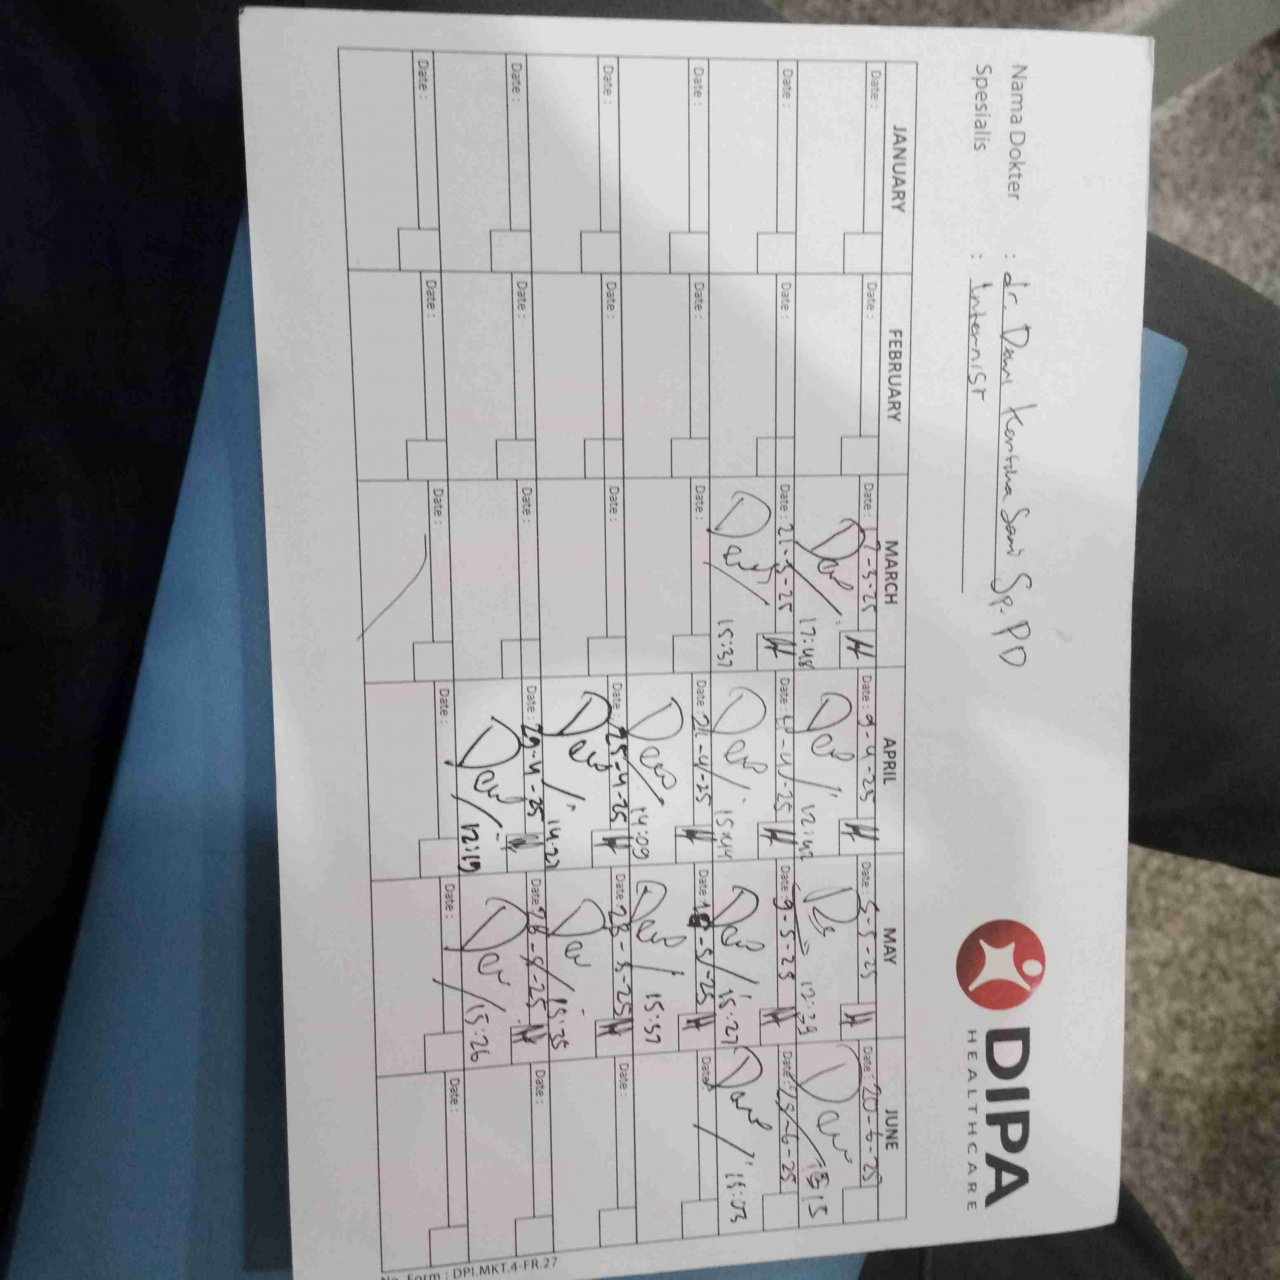 Nama Dokter : dr. Dewi Kartika Sari Sp. PD
Spesialis : Internist
DIPA
HEALTHCARE
JANUARY FEBRUARY MARCH APRIL MAY JUNE
Date : Date : Date : 17-3-25 Date : 9-4-25 Date : 5-5-25 Date : 20-6-25
17:48 12:42 12:39 15:15
Date : Date : Date : 21-3-25 Date : 17-4-25 Date : 9-5-25 Date : 25-6-25
15:37 15:44 15:27 15:03
Date : Date : Date : Date : 24-4-25 Date : Date :
14:09 15:57
Date : Date : Date : Date : 25-4-25 Date : 23-5-25 Date :
14:27 15:35
Date : Date : Date : Date : 29-4-25 Date : 28-5-25 Date :
12:19 15:26
Date : Date : Date : Date : Date : Date :
No. Form : DPI.MKT.4-FR.27